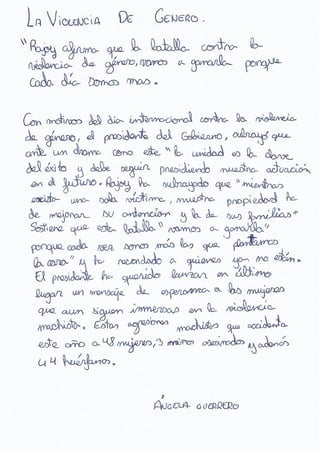 LA VIOLENCIA DE GENERO.
"Rajoy afirma que la batalla contra la
violencia de género, vamos a ganarla porque
cada día somos mas.
Con motivos del dia internacional contra la violencia
de género, el presidente del Gobierno, subrayó que
ante un drama como este "la unidad es la clave
del éxito y debe seguir presidiendo nuestra actuación
en el futuro. Rajoy ha subrayado que "mientras
exista una sola víctima, nuestra propiedad ha
de mejorar su antencion y la de sus familias"
Sostiene que esta batalla "vamos a ganarla"
porque cada vez somos más las que plantamos
la cara" y ha recordado a quienes ya no están.
El presidente ha querido lanzar en último
lugar un mensaje de esperanza a las mujeres
que aun siguen inmersas en la violencia
machista. Estas agresiones machistas que accidenta
este año a 48 mujeres, 3 niños asesinados y además
44 huérfanos.
ÁNGELA GUERRERO